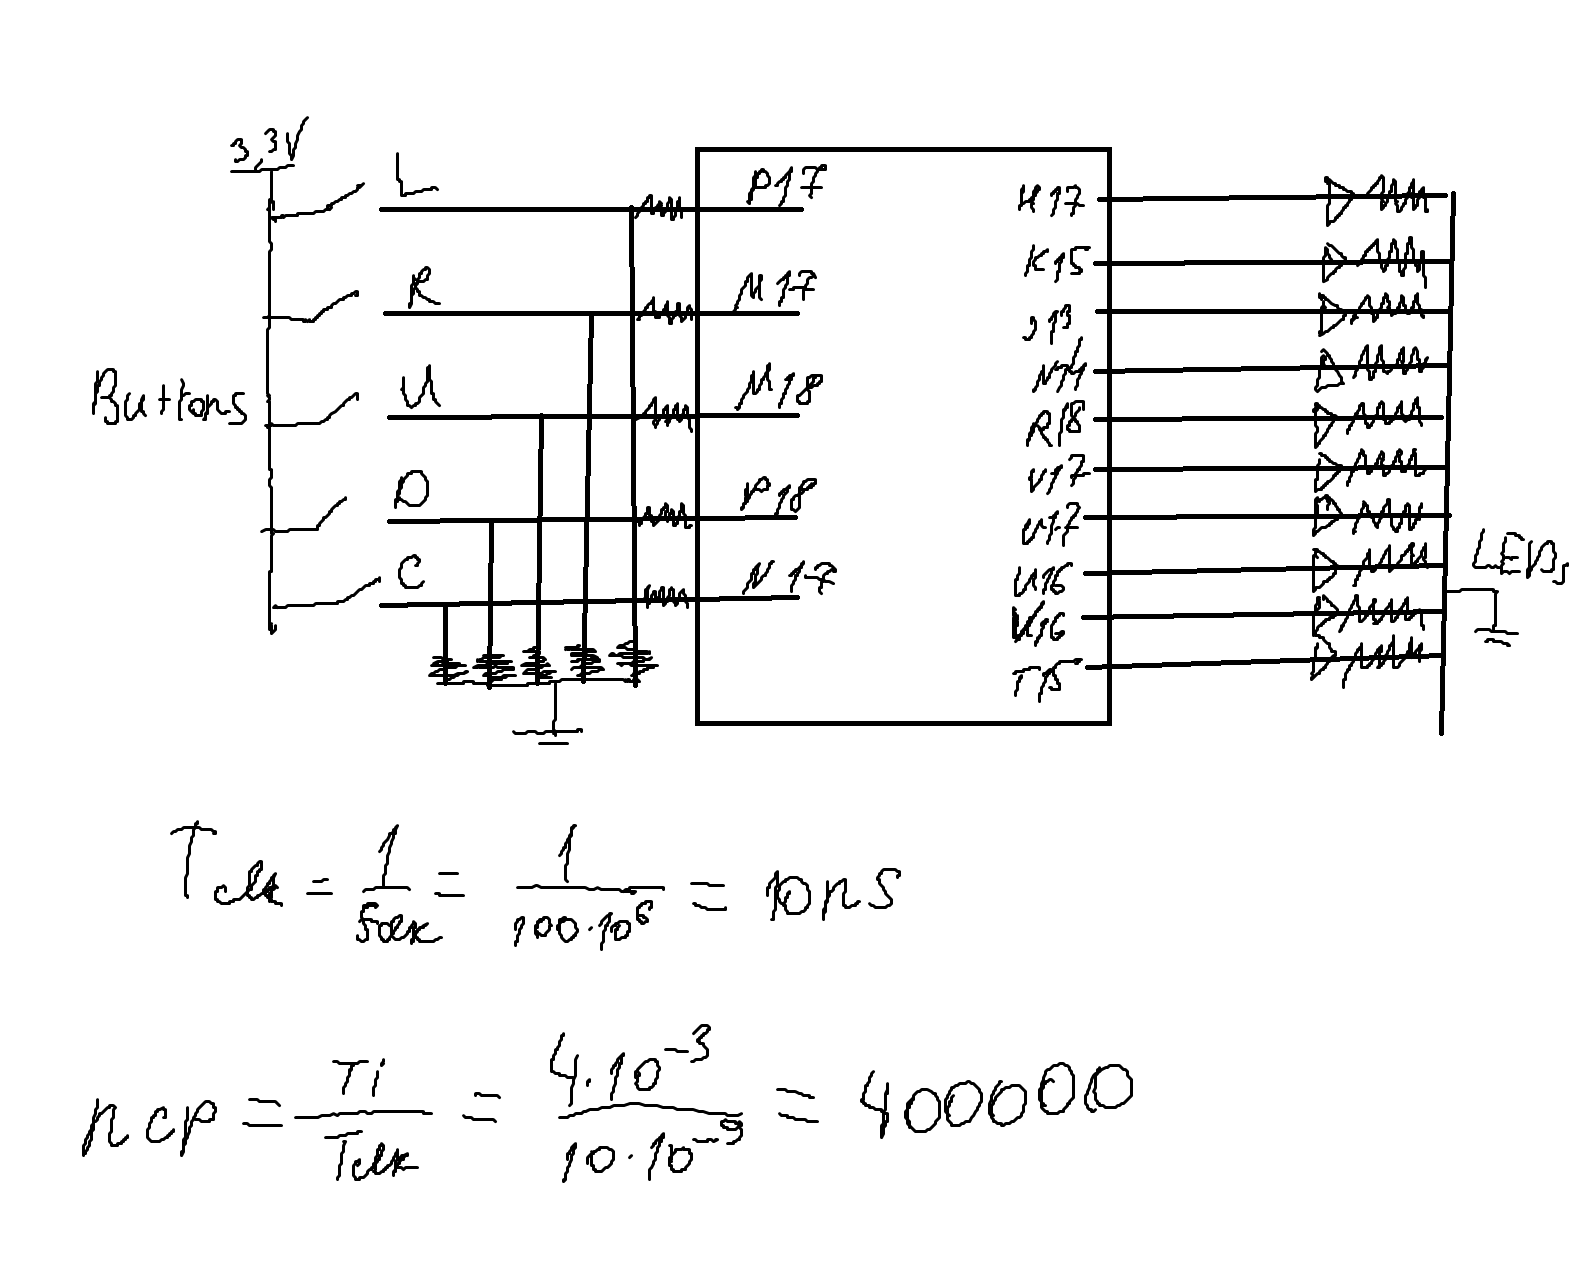 3,3V
L
P17
R
M17
Buttons
U
M18
D
P18
C
N17
H17
K15
J13
N14
R18
V17
U17
U16
V16
T15
LEDs
Tclk = 1/fclk = 1/100·10⁶ = 10ns
ncp = Ti/Tclk = 4·10⁻³/10·10⁻⁹ = 400000